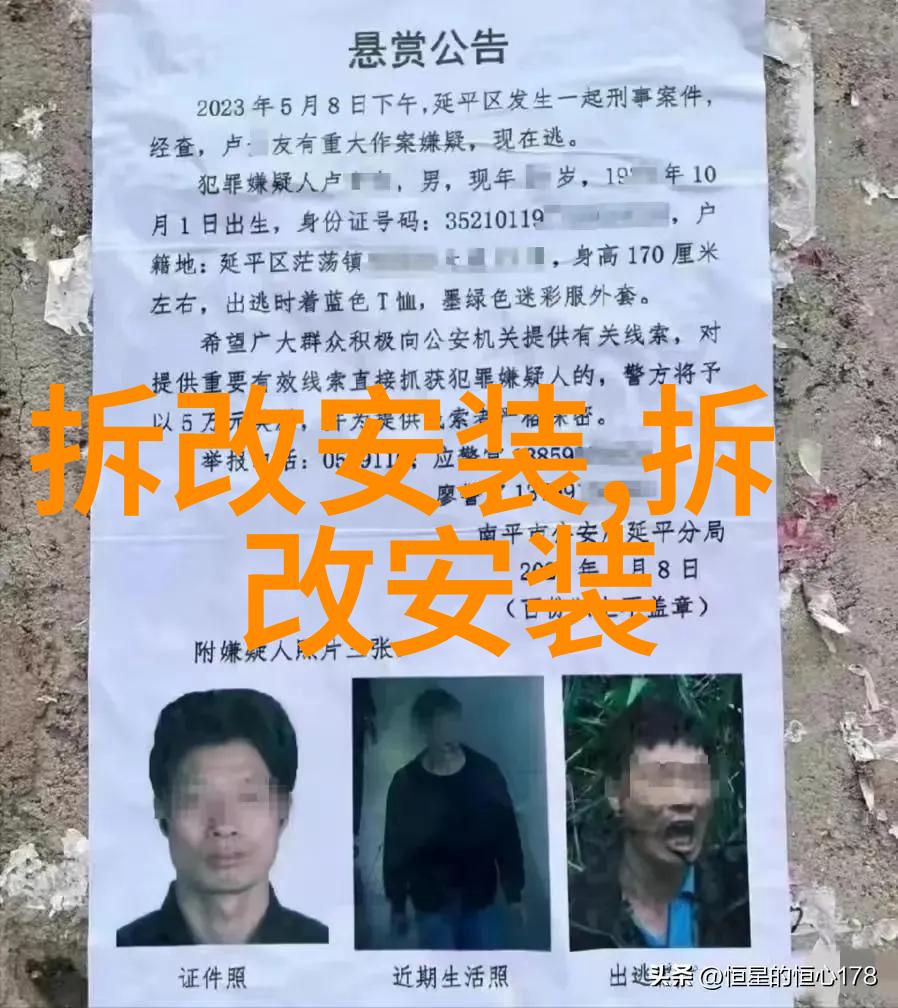 悬赏公告
2023年5月8日下午,延平区发生一起刑事案件,
经查,卢 友有重大作案嫌疑,现在逃。
犯罪嫌疑人卢 ,男,现年 岁,19 年10
月1日出生,身份证号码:35210119 ,户
籍地:延平区茫荡镇 ,身高170厘米
左右,出逃时着蓝色T恤,墨绿色迷彩服外套。
希望广大群众积极向公安机关提供有关线索,对
提供重要有效线索直接抓获犯罪嫌疑人的,警方将予
以5万元 提供 索 密。
拆改安装,拆
改安装
举报 话:05 911 应警官 3859
廖警 13 9
南平市公安 延平分局
20 年 月8日
盖章)
附嫌疑人照片三张
证件照
近期生活照
出逃
头条 @恒星的恒心178